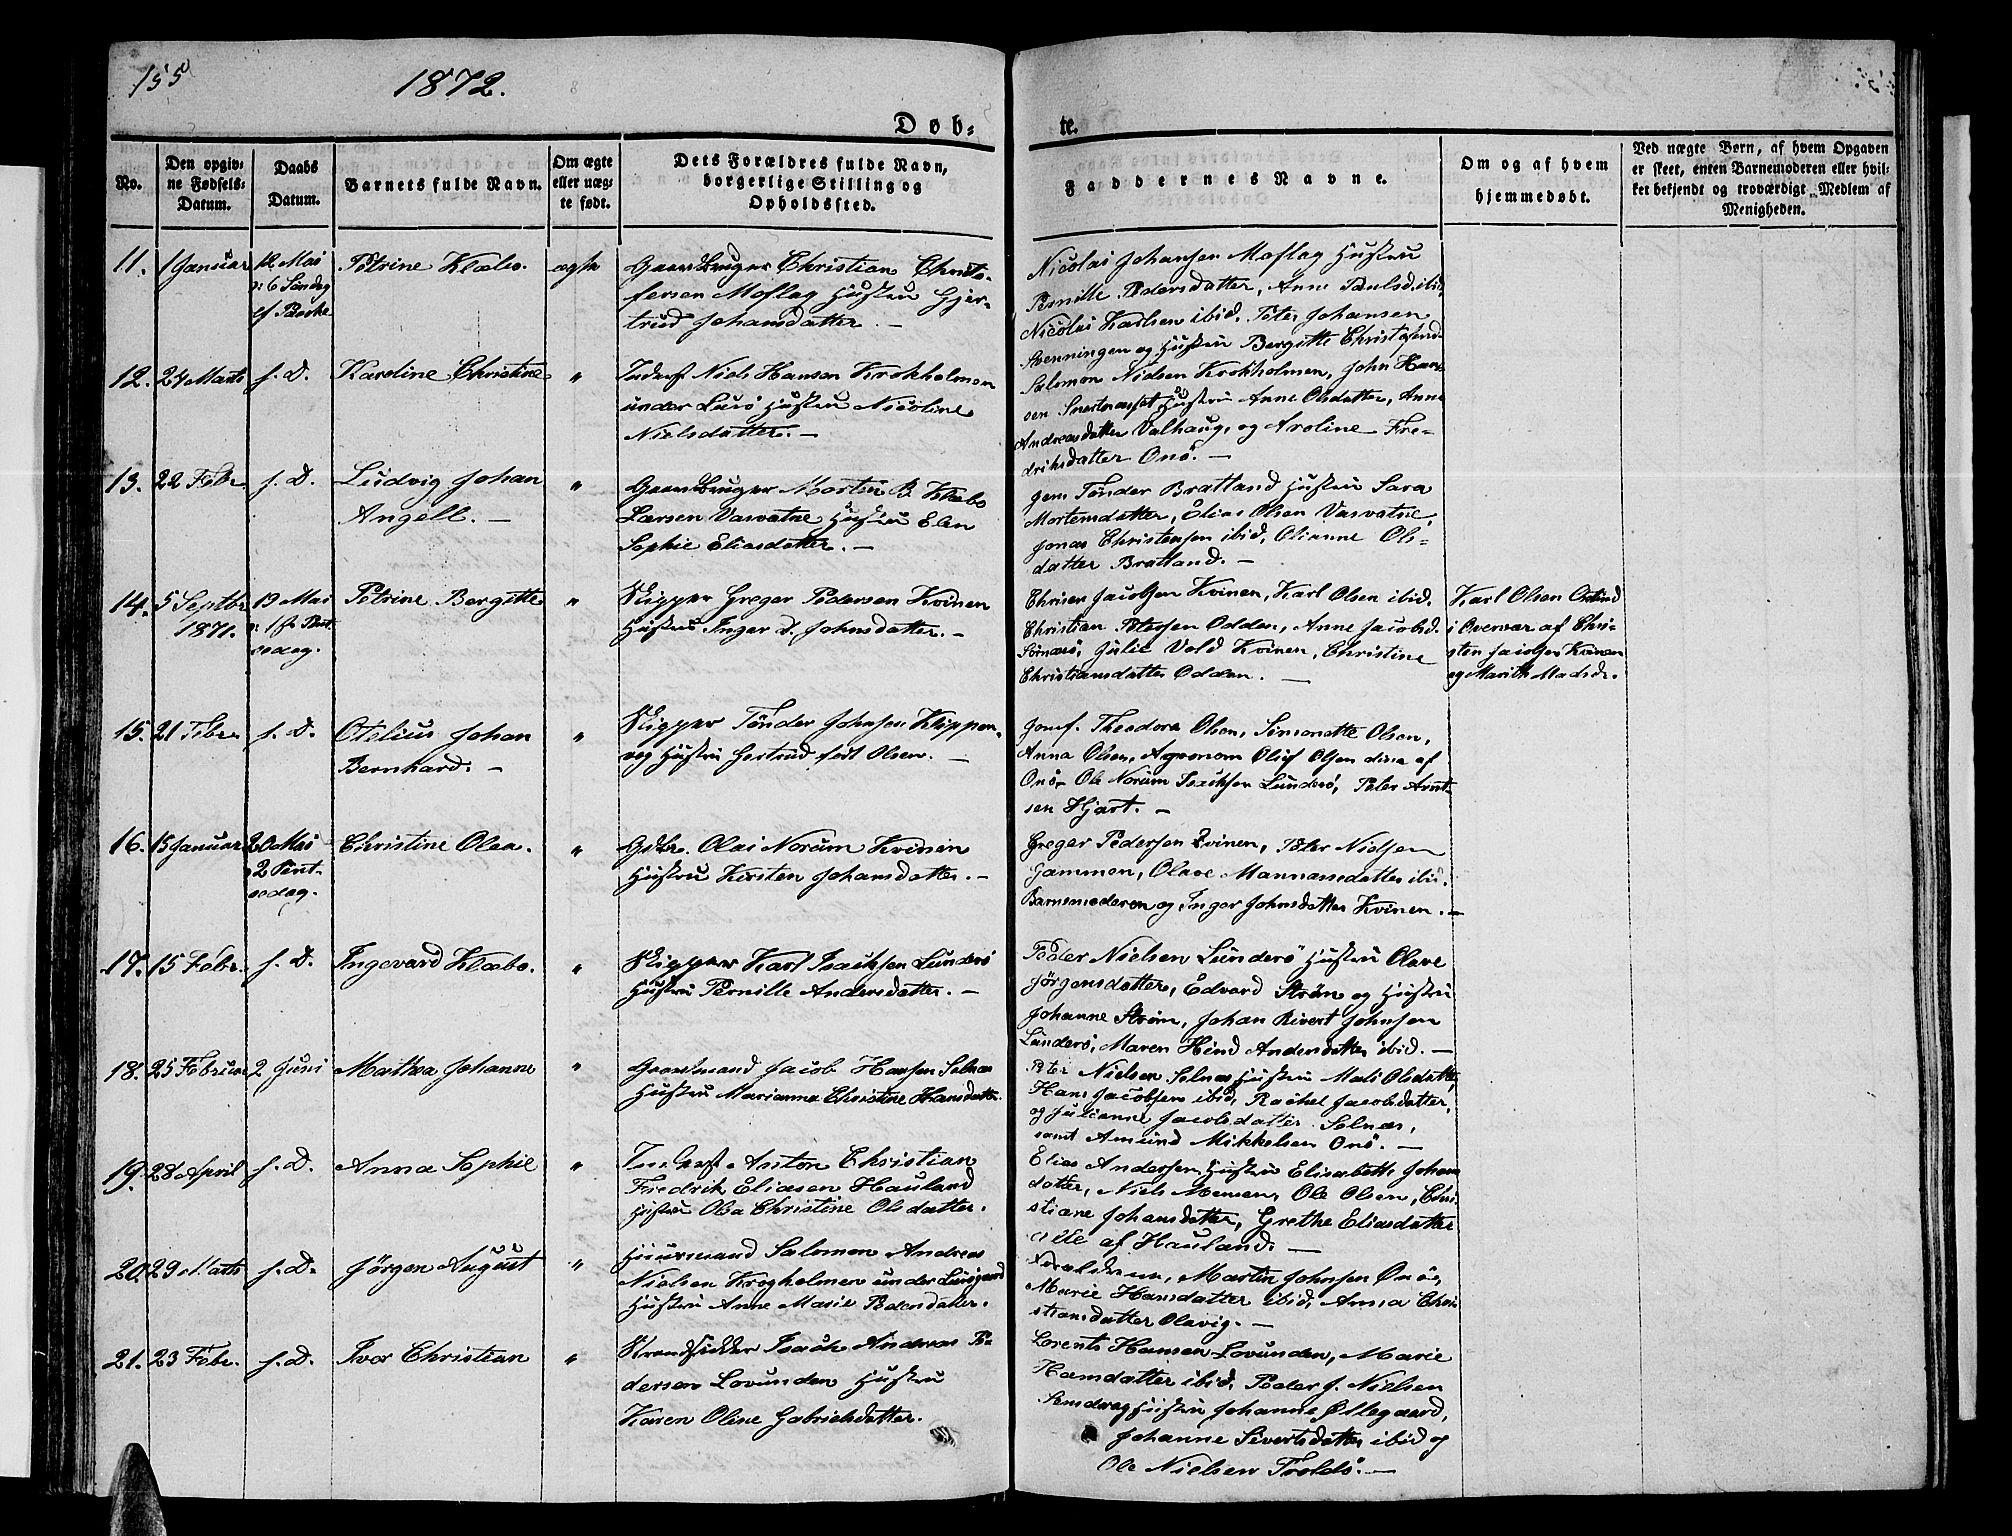 155
1872.
Døb-
te.
No.
Den opgiv-
ne Fødsels-
Datum.
Daabs
Datum.
Barnets fulde Navn.
Om ægte
eller uæg-
te født.
Dets Forældres fulde Navn,
borgerlige Stilling og
Opholdssted.
Faddernes Navne.
Om og af hvem
hjemmedøbt.
Ved uægte Børn, af hvem Opgaven
er skeet, enten Barnemoderen eller hvil-
ket bekjendt og troværdigt Medlem af
Menigheden.
11. 1 Januar 12 Mai
6 Søndag
ef Paaske
Petrine Klæbo. ægte
Gaardbruger Christian Christo-
fersen Moflag Hustru Gjer-
trud Johansdatter. —
Nicolai Johansen Moflag Hustru
Pernille Pedersdatter, Anne Paulsd. ibid,
Nicolai Karlsen ibid. Peter Johansen
Svenningen og Hustru Bergitte Christofersd.
12. 24 Marts s. D. Karoline Christine "
Inderst Niels Hansen Krokholmen
under Lurö Hustru Nicoline
Nielsdatter. —
Salomon Nielsen Krokholmen, John Han-
sen Hustru Anne Olsdatter, Anne
Andreasdatter Valhaug, og Aroline Fre-
driksdatter Onö. —
13. 22 Febr. s. D. Ludvig Johan
Angell. — "
Gaardbruger Martin B. Klæbo
Larsen Varvatne Hustru Elen
Sophie Eliasdatter. —
Jens Tönder Bratland Hustru Sara
Mortensdatter, Elias Olsen Varvatne,
Jonas Christensen ibid, Olianne Ols-
datter Bratland. —
14. 5 Septbr
1871.
19 Mai
1ste Pint-
sedag.
Petrine Bergitte "
Skipper Greger Pedersen Kvinen
Hustru Inger d. Johnsdatter. —
Christen Jacobsen Kvinen, Karl Olsen ibid.
Christian Petersen Odden, Anne Jacobsd.
Sörnesö, Julie Vold Kvinen, Christine
Christiansdatter Odden. —
Karl Olsen
i Overvær af Chri-
sten Jacobsen Kvinen
og Marith Madsd.
15. 21 Febr. s. D. Otelius Johan
Bernhard. — "
Skipper Tönder Johnsen Klippen-
vog Hustru Gertrud født Olsen. —
Jomf. Theodora Olsen, Simonette Olsen,
Anna Olsen, Agronom Oluf Olsen disse af
Onö. Ole Norum Isaksen Lunderö, Peter Arnt-
sen Hjart. —
16. 15 Januar 20 Mai
2 Pint-
sedag.
Christine Olea. "
Gdbr. Olai Norum Kvinen
Hustru Kirsten Johansdatter. —
Greger Pedersen Kvinen, Peter Nielsen
Gammen, Olave Mannasdatter ibid.
Barnemoderen og Inger Johnsdatter Kvinen. —
17. 15 Febr. s. D. Ingevard Klæbo. "
Skipper Karl Isaksen Lunderö
Hustru Pernille Andersdatter. —
Peder Nielsen Lunderö Hustru Olave
Jörgensdatter, Edvard Ström og Hustru
Johanne Ström, Johan Rivert Johnsen
Lunderö, Maren Hind Andersdatter ibid. —
18. 25 Februar 2 Juni Mathea Johanne "
Gaardmand Jacob Hansen Selnæs
Hustru Marianna Christine Hansdatter.
Peter Nielsen Selnæs Hustru Mali Olsdatter,
Hans Jacobsen ibid, Rachel Jacobsdatter,
og Julianne Jacobsdatter Selnæs,
samt Amund Mikkelsen Onö. —
19. 28 April s. D. Anna Sophie "
Inderst Anton Christian
Fredrik Eliasen Hauland
Hustru Olea Christine Olsdatter.
Elias Andersen Hustru Elisabeth Johans-
datter, Niels Monsen, Ole Olsen, Chri-
stiane Johansdatter, Grethe Eliasdatter
alle af Hauland. —
20. 29 Marts s. D. Jörgen August "
Huusmand Salomon Andreas
Nielsen Krogholmen under Lurögaard
Hustru Anne Marie Pedersdatter.
Forældrene, Martin Johnsen Onöe,
Marie Hansdatter ibid, Anna Chri-
stiansdatter Olavig. —
21. 23 Febr. s. D. Ivar Christian "
Strandsidder Isack Andreas Pe-
dersen Lovunden Hustru
Karen Oline Gabrielsdatter.
Lorents Hansen Lovunden, Marie
Hansdatter ibid, Peder J. Nielsen
Hustru Johanne Øllegaard,
Johanne Sivertsdatter ibid og
Ole Nielsen Troldö. —